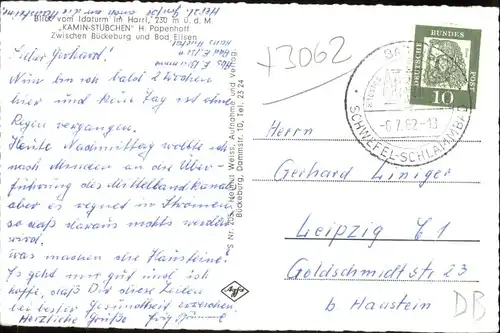 Blick vom Idaturm im Harrl, 230 m ü. d. M.
„KAMIN-STÜBCHEN" H. Papenhoff
Zwischen Bückeburg und Bad Eilsen
Lieber Gerhard!
Nun bin ich bald 2 Wochen
hier und kein Tag ist ohne
Regen vergangen.
Heute Nachmittag wollte ich
nach Minden an die Über-
führung des Mittellandkanals
aber es regnet in Strömen
so daß daraus nichts werden
wird.
Was machen die Haussteine?
Es geht mir gut und ich
hoffe, daß Dir diese Zeilen
bei bester Gesundheit erreichen
Herzliche Grüße
S Nr. 205 Helmut Weiss, Aufnahme und Verlag,
Bückeburg, Dammstr. 10, Tel. 23 24
13062
-6.7.62-13
SCHWEFEL-SCHLAMMBAD
DEUTSCHE
BUNDES
POST
10
Herrn
Gerhard Liniger
Leipzig C1
Goldschmidtstr 23
b Haustein
DB